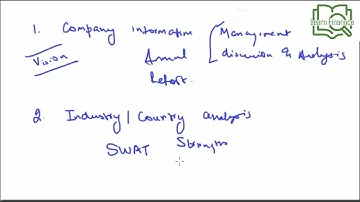 1. Company Information
Vision
Annual Report.
Management
discussion & Analysis
2. Industry / Country analysis
SWAT Strengths
Learn Finance